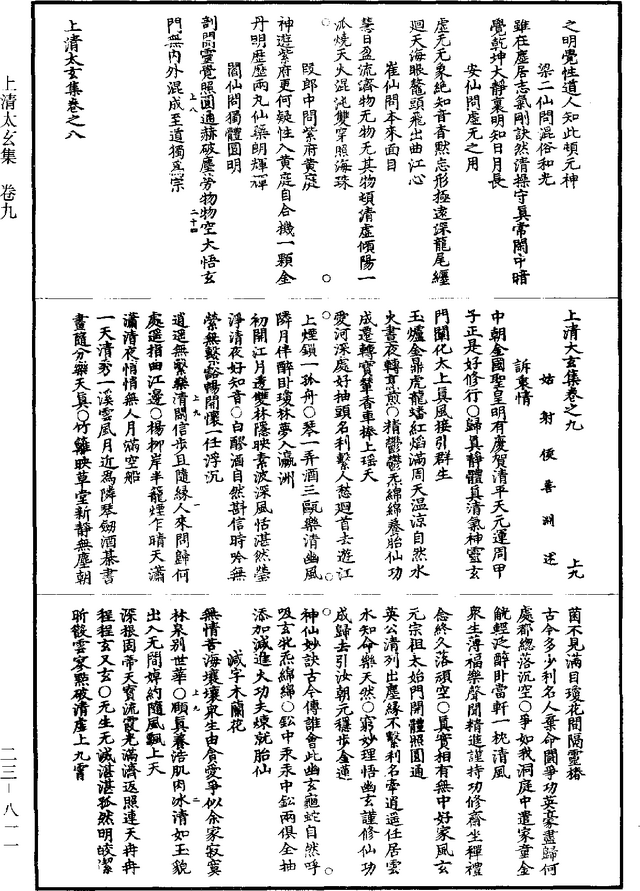 之明覺性道人知此頓元神
梁二仙問混俗和光
雖在塵居志氣剛訣然清操守真常鬧中暗
覺乾坤大靜裏明知日月長
安仙問虛无之用
虛无无象絶知音杳默忘形極遠深龍尾纏
迴天海眼鼇頭飛出曲江心
崔仙問本來面目
暮日盈流濟物无物无其物頓清虛傾陽一
派燒天火混沌雙穿照海珠
段郎中問紫府黃庭
神遊紫府更何疑性入黃庭自合機一顆金
丹明歷歷兩丸仙藥朗輝輝
閻仙問獨體圓明
剖開靈覺照圓通赫破塵勞物物空大悟玄
門無內外混成至道獨爲宗
上清太玄集卷之八
上八
二十四
上清太玄集 卷九
上清太玄集卷之九
上九
姑射侯善淵述
訴衷情
中朝金國聖皇明有慶賀清平天元運周甲
子正是好修行○歸真靜體真清氣神靈玄
門闡化太上真風接引群生
玉爐金鼎虎龍蟠紅焰滿周天温涼自然水
火晝夜轉烹煎○精鬱鬱炁綿綿養胎仙功
成遷轉寶輦香車捧上瑶天
愛河深處好抽頭名利繫人愁迴首去遊江
上煙鎖一孤舟○琴一弄酒三甌樂清幽風
隣月伴醉卧瓊林夢入瀛洲
初開江月透雙林隱映素波深風恬湛然瑩
淨清夜好知音○白醪酒自然斟信時吟無
縈無繫豁暢開懷一任浮沉
逍遥無繫樂清閑信步且隨緣人來問歸何
處遥指曲江邊○楊柳岸半籠煙乍晴天瀟
瀟清夜悄悄無人月滿空船
一天清秀一溪雲風月近爲隣琴劒酒棊書
畫隨分樂天真○竹籬映草堂新靜無塵朝
上九
一
菌不見滿目瓊花間隔靈椿
古今多少利名人棄命鬭爭功英豪盡歸何
處都總落沉空○爭如我洞庭中遣家童金
觥輕泛醉卧當軒一枕清風
衆生薄福樂聲聞精進謹持功修齋坐禪禮
念終久落頑空○真實相有無中好家風玄
元宗祖太始門開體照圓通
英公清列出塵緣不繫利名牽逍遥任居雲
水知命樂天然○窮妙理悟幽玄謹修仙功
成歸去引汝朝元穩步金蓮
神仙妙訣古今傳誰會此幽玄龜蛇自然呼
吸玄牝炁綿綿○鈆中汞汞中鈆兩俱全抽
添加減進火功夫煉就胎仙
減字木蘭花
無情苦海壤壤衆生由貪愛爭似余家寂寞
林泉别世華○頤真養浩肌肉冰清如玉貌
出入无間婥約隨風飄上天
深根固帶天寶流霞光滿濟返照連天冉冉
程程玄又玄○无生无滅湛湛孤然明皎潔
昕散雲家點破清虛上九霄
上九
二
二三-八一一